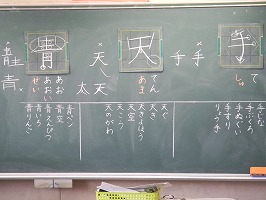 手
て
しゅ
手
手
天
てん
あま
天
天
太
青
あお
あおい
せい
青
青
手じな
手ぶくろ
手ぬぐい
手すり
りょう手
天ぐ
天き
天きよほう
天空
天こう
天のがわ
青ペン
青空
青えんぴつ
青いろ
青りんご